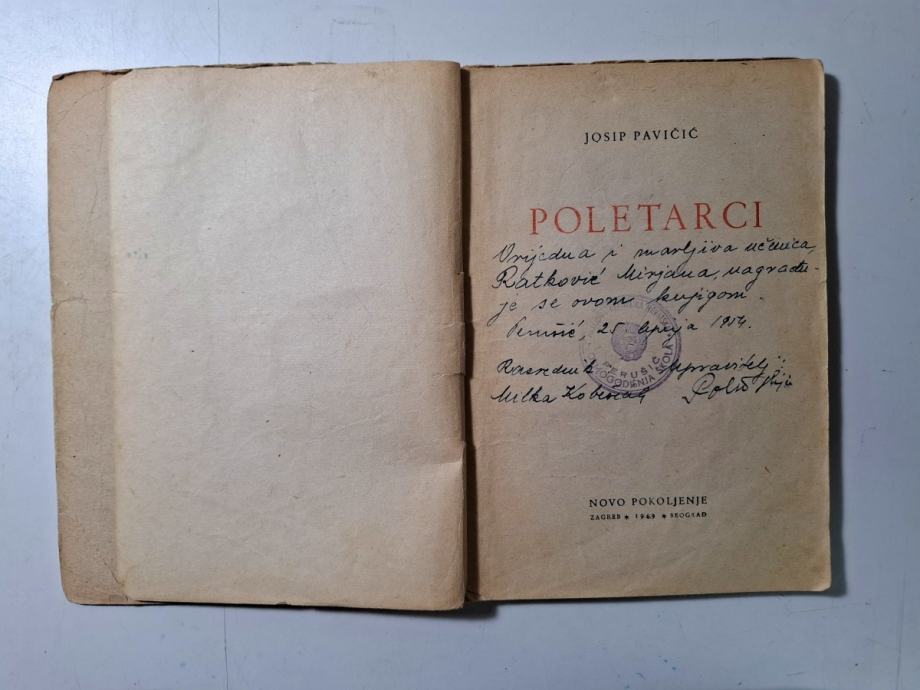 JOSIP PAVIČIĆ
POLETARCI
Vrijedna i marljiva učenica,
Ratković Mirjana, nagrađu-
je se ovom knjigom.
Perušić, 25 lipnja 1954.
Razrednik Upravitelj:
Milka
PERUŠIĆ
ŠKOLA
NOVO POKOLJENJE
ZAGREB * 1949 * BEOGRAD